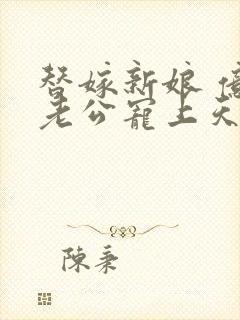 替嫁新娘 億
老公寵上天
陳秉